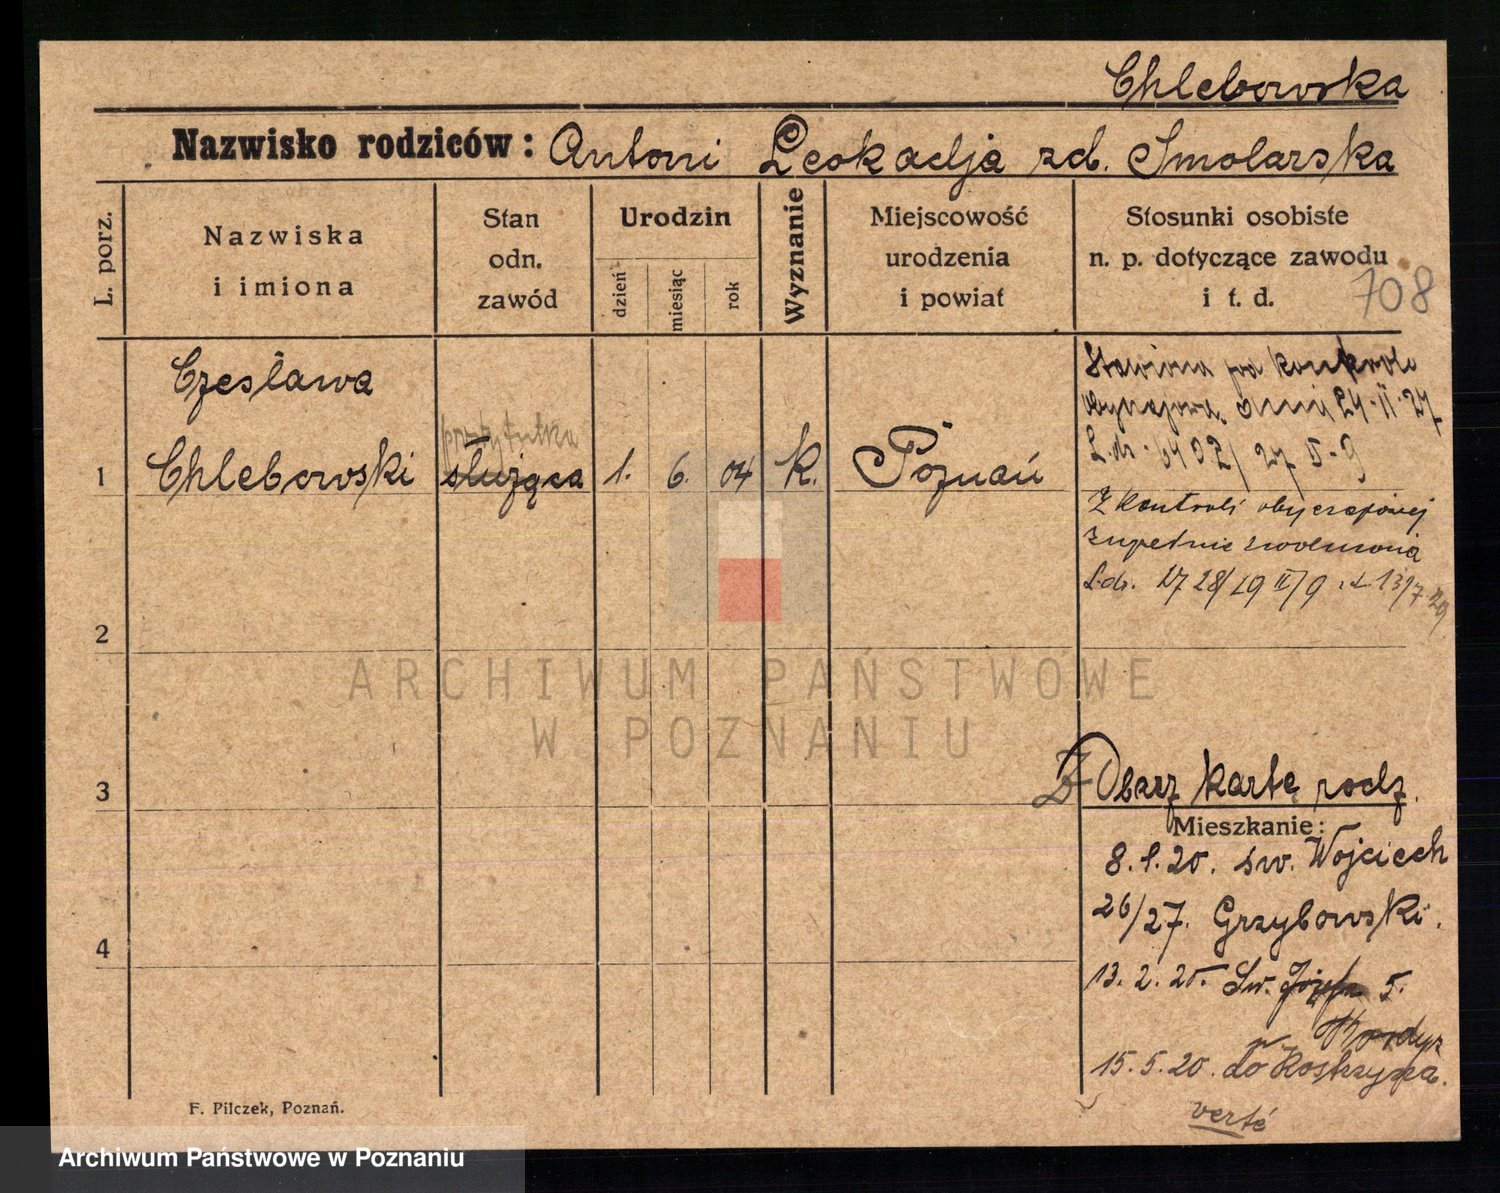 Chlebowska
Nazwisko rodziców: Antoni Leokadja zd. Smolarska
L. porz.
Nazwiska
i imiona
Stan
odn.
zawód
Urodzin
dzień
miesiąc
rok
Wyznanie
Miejscowość
urodzenia
i powiat
Stosunki osobiste
n. p. dotyczące zawodu
i t. d.
708
Czesława
prostytutka
1 Chlebowski służąca 1. 6. 04 K. Poznań
Stawiona pod kontrolę
obyczajową dnia 24-II-27
L.dz. 6402/27 5-9
Z kontroli obyczajowej
zupełnie zwolniona
L.dz. 2728/29 II/9
2
3
4
Obacz kartę rodz.
Mieszkanie:
8.1.20. św. Wojciech
26/27. Grzybowski.
13.2.20. Św. Józefa 5.
15.5.20. do Kostrzyna.
verte
F. Pilczek, Poznań.
ARCHIWUM PAŃSTWOWE
W POZNANIU
Archiwum Państwowe w Poznaniu